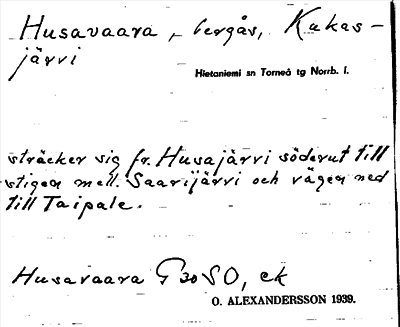 Husavaara, bergås, Kukas-
järvi
Hietaniemi sn Torneå tg Norrb. l.
sträcker sig fr. Husajärvi söderut till
stigen mell. Saarijärvi och vägen ned
till Taipale.
Husavaara 30 SO, ek
O. ALEXANDERSSON 1939.